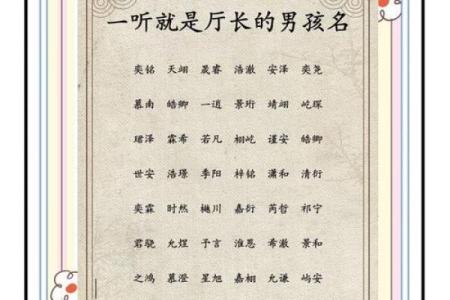 一听就是厅长的男孩名
奕铭 天翊 晟睿 浩澈 安泽 奕尧
慕南 皓卿 一逍 景珩 靖翊 屹琛
珺泽 霖希 若凡 栩屹 谨安 皓卿
世安 浩璟 季阳 梓铭 潇和 清衍
奕霖 时然 樾川 嘉衍 芮哲 祁宁
君骁 允煜 予言 淮恩 希澈 景和
之鸿 慕澄 星旭 嘉栩 允谦 屿安